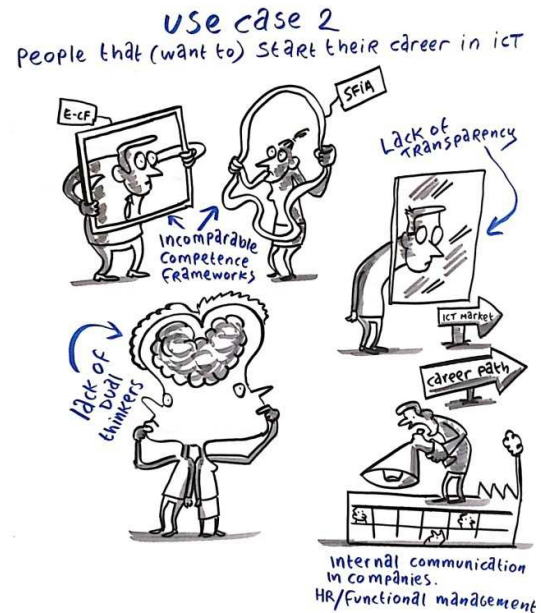 use case 2
people that (want to) start their career in icT
E-CF
SFiA
Incomparable
Competence
Frameworks
Lack of
TRansparency
ICT Market
lack of
Dual
thinkers
career path
Internal communication
in companies.
HR/Functional management